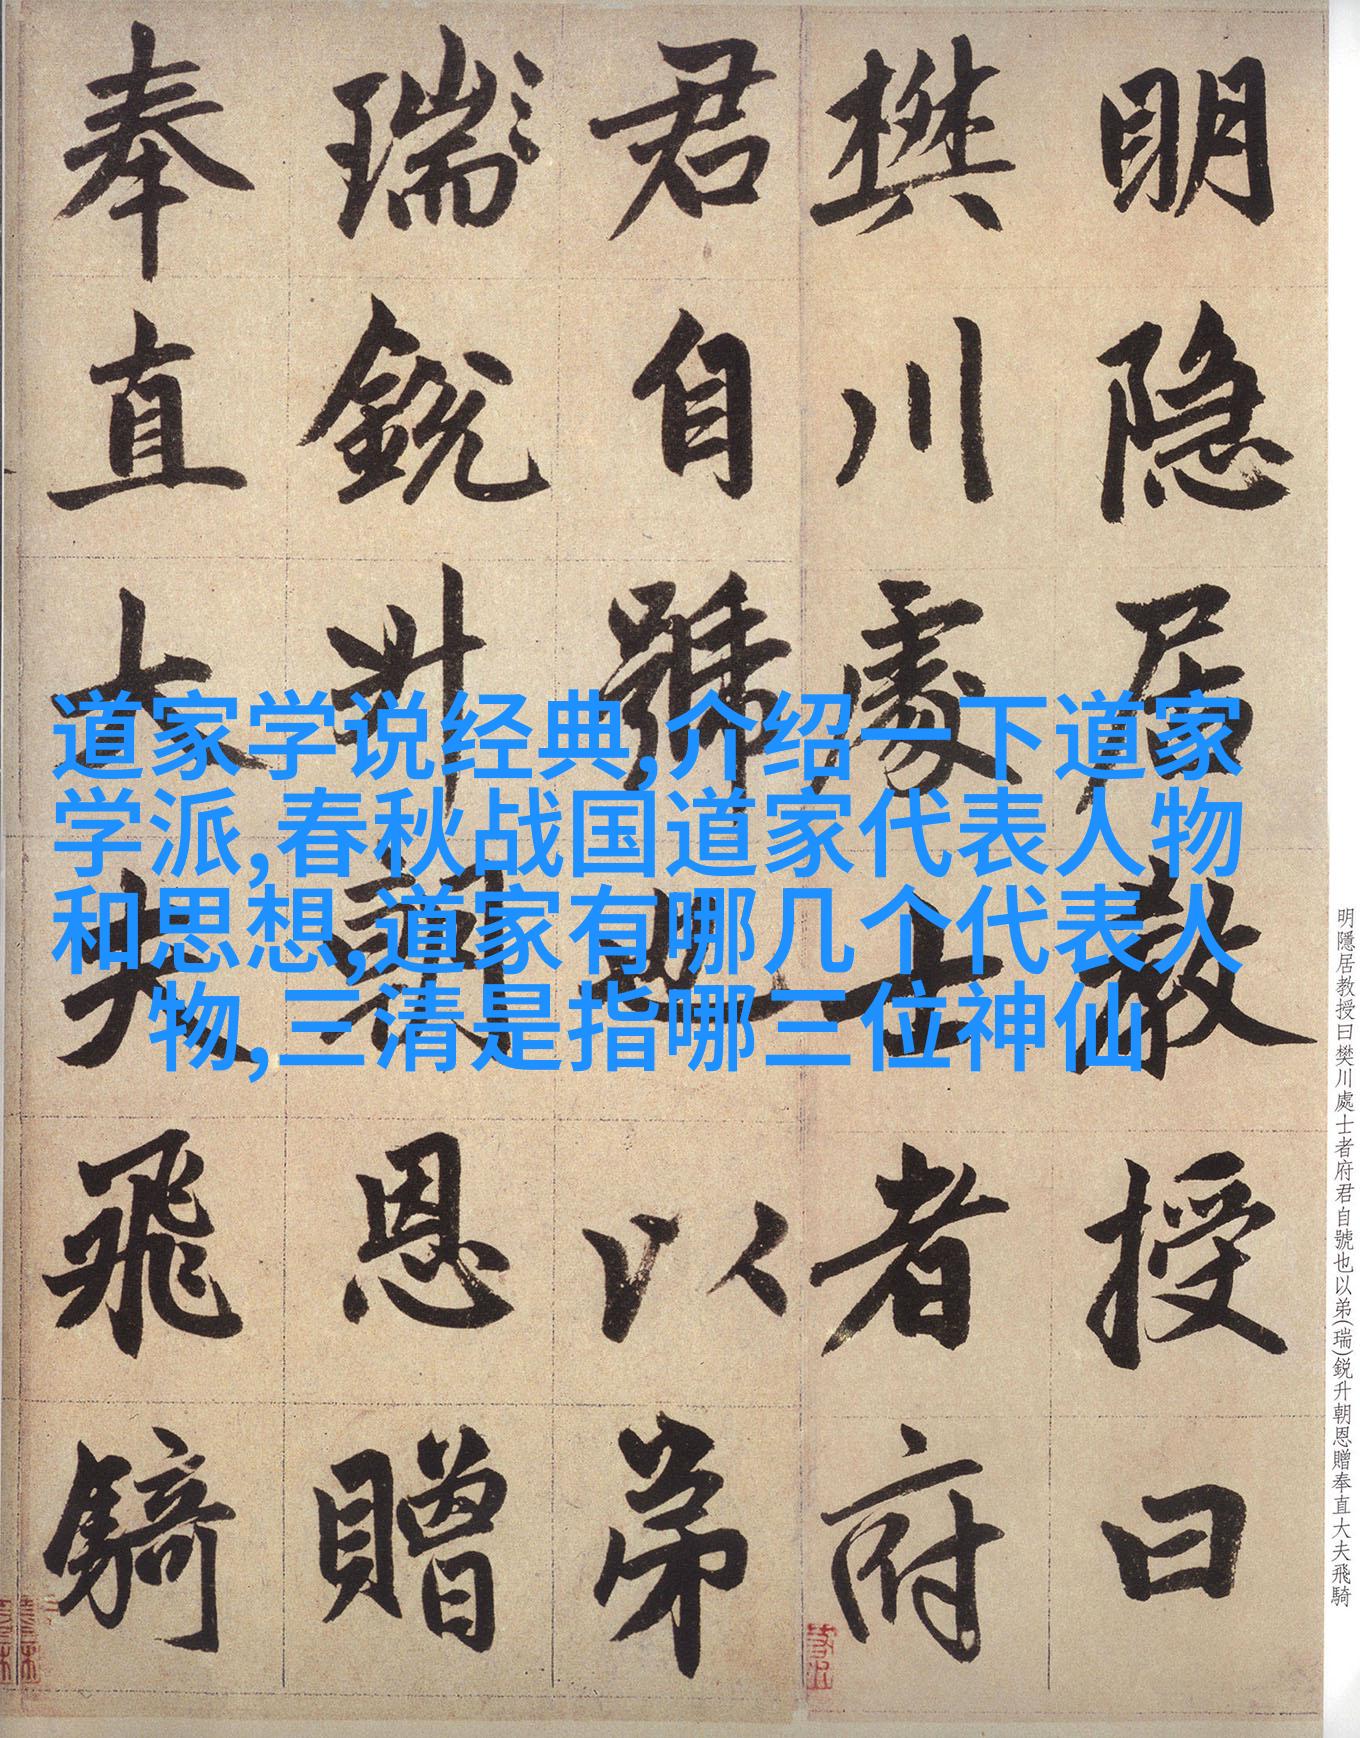 明隐居教授曰
樊川處士者府
君自號也以弟
瑞鋭升朝恩贈
奉直大夫飛騎
道家学说经典,介绍一下道家
学派,春秋战国道家代表人物
和思想,道家有哪几个代表人
物,三清是指哪三位神仙
明隱居教授曰樊川處士者府君自號也以弟(瑞)鋭升朝恩贈奉直大夫飛騎